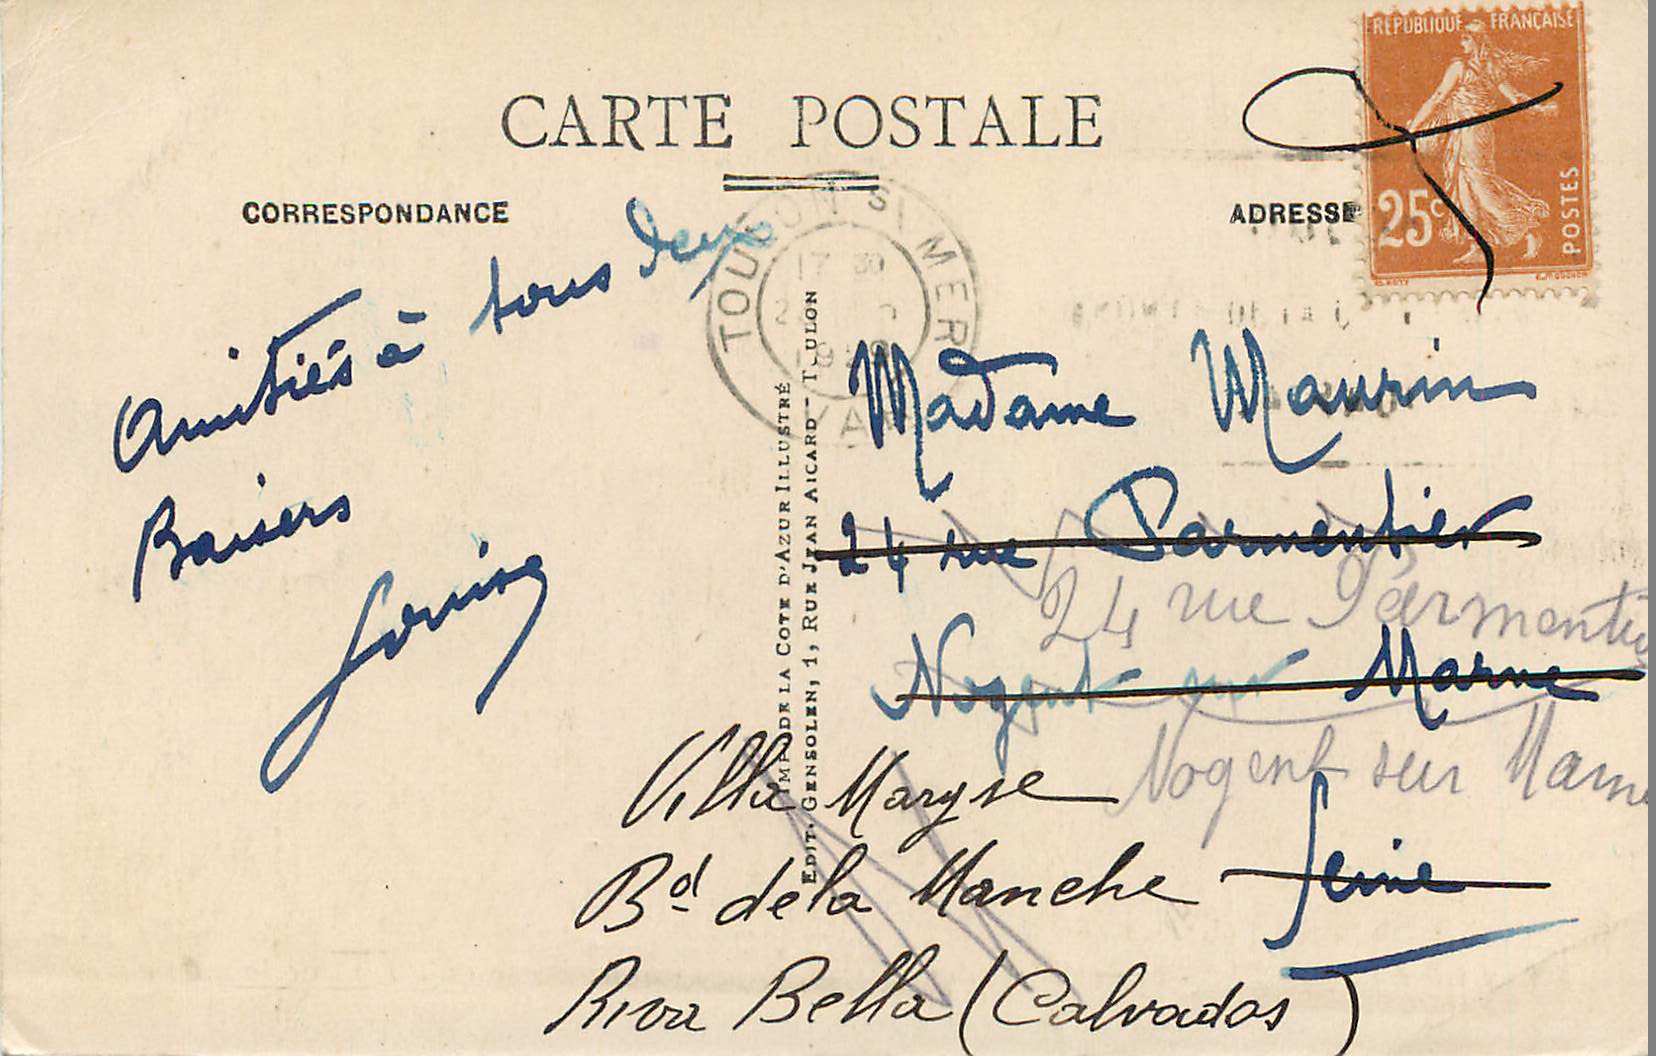 RÉPUBLIQUE FRANÇAISE
25c
POSTES
CARTE POSTALE
CORRESPONDANCE
ADRESSE
TOULON S/ MER
17 30
VAR
Amitiés à tous deux
Baisers
Louise
IMP. DE LA COTE D'AZUR ILLUSTRÉ
EDIT. GENSOLEN, 1, RUE JEAN AICARD - TOULON
Madame Maurin
24 rue Parmentier
24 rue Parmentier
Nogent sur Marne
Nogent sur Marne
Seine
Villa Maryse
Bd de la Manche
Riva Bella (Calvados)